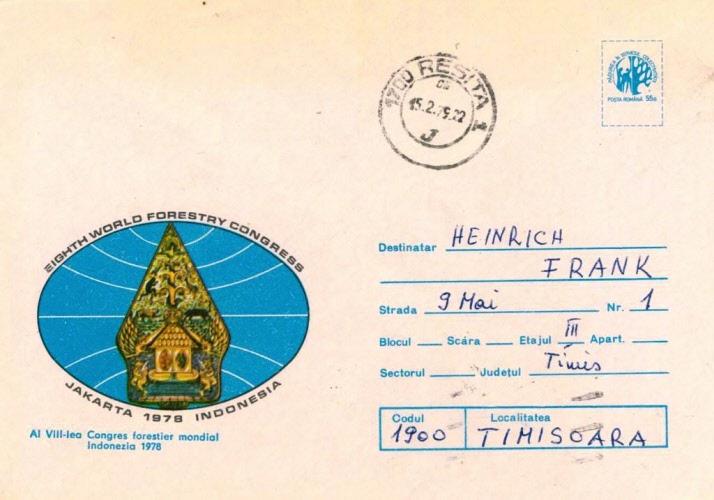 PĂDUREA ÎN SERVICIUL COLECTIVITĂȚII
POȘTA ROMÂNĂ 55b
1700 REȘIȚA 1
15.2.79.22
J
EIGHTH WORLD FORESTRY CONGRESS
JAKARTA 1978 INDONESIA
Al VIII-lea Congres forestier mondial
Indonezia 1978
Destinatar HEINRICH
FRANK
Strada 9 Mai Nr. 1
Blocul Scára Etajul III Apart.
Sectorul Județul Timis
Codul Localitatea
1900 TIMISOARA